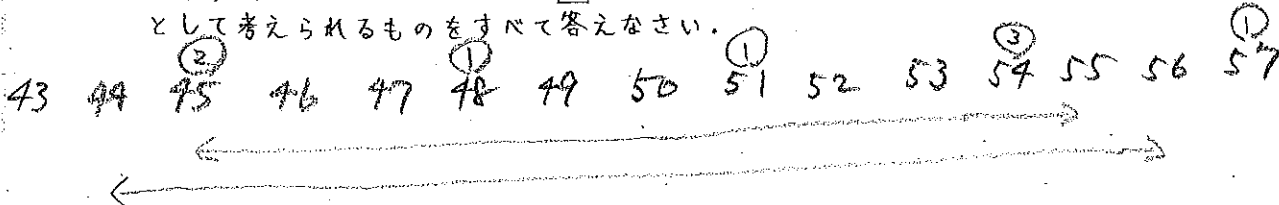 として考えられるものをすべて答えなさい.
② ① ① ③ ①
43 44 45 46 47 48 49 50 51 52 53 54 55 56 57